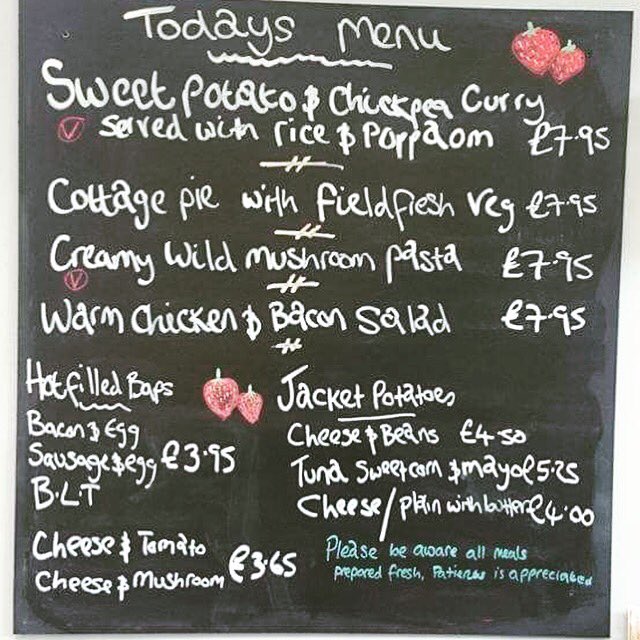 Todays Menu
Sweet Potato & Chickpea Curry
V served with rice & Poppaom £7.95
Cottage pie with fieldfresh veg £7.95
Creamy Wild mushroom pasta £7.95
V
Warm Chicken & Bacon Salad £7.95
Hot filled Baps
Bacon & Egg
Sausage & egg £3.95
B.L.T
Cheese & Tomato
Cheese & Mushroom £3.65
Jacket Potatoes
Cheese & Beans £4.50
Tuna Sweetcorn & mayo £5.25
Cheese/plain with butter £4.00
Please be aware all meals
prepared fresh, Patience is appreciated